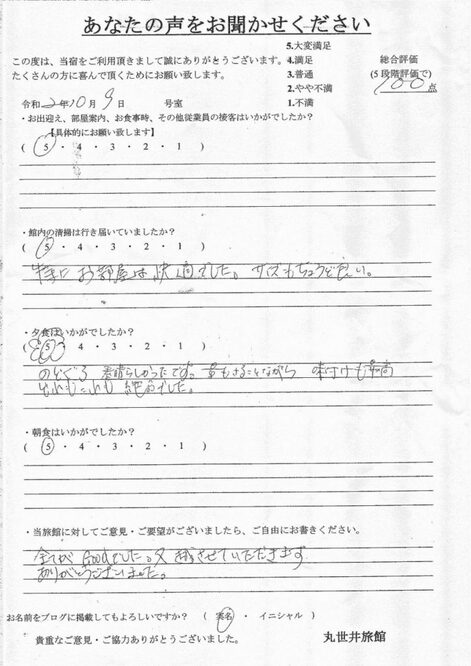 あなたの声をお聞かせください
この度は、当宿をご利用頂きまして誠にありがとうございます。
たくさんの方に喜んで頂くためにお願い致します。
5.大変満足
4.満足
3.普通
2.やや不満
1.不満
総合評価
(5段階評価で)
100点
令和2年10月9日 号室
・お出迎え、部屋案内、お食事時、その他従業員の接客はいかがでしたか?
【具体的にお願い致します】
( 5 ・ 4 ・ 3 ・ 2 ・ 1 )
・館内の清掃は行き届いていましたか?
( 5 ・ 4 ・ 3 ・ 2 ・ 1 )
特に お部屋は快適でした。サイズもちょうど良い。
・夕食はいかがでしたか?
( 5 ・ 4 ・ 3 ・ 2 ・ 1 )
のどぐろ 素晴らしかったです。量もさることながら 味付けも最高
どれもこれも 絶品でした。
・朝食はいかがでしたか?
( 5 ・ 4 ・ 3 ・ 2 ・ 1 )
・当旅館に対してご意見・ご要望がございましたら、ご自由にお書きください。
全てが Goodでした。又 来させていただきます
ありがとうございました。
お名前をブログに掲載してもよろしいですか? ( 実名 ・ イニシャル )
貴重なご意見・ご協力ありがとうございました。
丸世井旅館